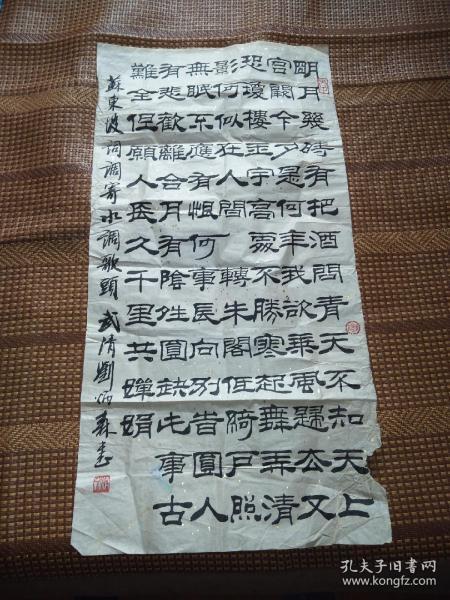 明月幾時有把酒問青天不知天上
宮闕今夕是何年我欲乘風歸去又
恐瓊樓玉宇高處不勝寒起舞弄清
影何似在人間轉朱閣低綺戶照
無眠不應有恨何事長向別時圓人
有悲歡離合月有陰晴圓缺此事古
難全但願人長久千里共嬋娟
蘇東坡詞調寄水調歌頭 武清劉炳森書
孔夫子旧书网
www.kongfz.com